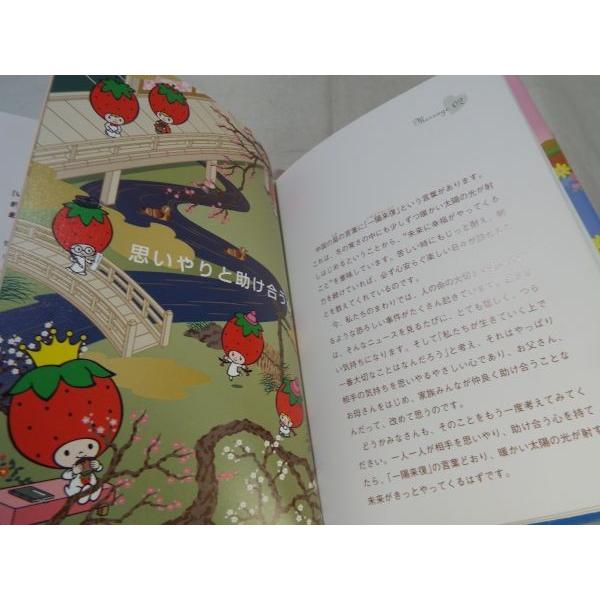 思いやりと助け合う
Message 02
中国の易の言葉に「一陽来復」という言葉があります。
これは、冬の寒さの中にも少しずつ暖かい太陽の光が射
しはじめるということから、"未来に幸福がやってくる
こと"を意味しています。苦しい時にもじっと耐え、努
力を続けていれば、必ず心安らぐ楽しい日々が訪れる
とを教えてくれているのです。
今、私たちのまわりでは、人の命の大切さ
るような恐ろしい事件がたくさん起きています。
は、そんなニュースを見るたびに、とても悲しく、つら
い気持ちになります。そして「私たちが生きていく上で
一番大切なことはなんだろう」と考え、それはやっぱり
相手の気持ちを思いやるやさしい心であり、お父さん、
お母さんをはじめ、家族みんなが仲良く助け合うことな
んだって、改めて思うのです。
どうかみなさんも、そのことをもう一度考えてみてく
ださい。一人一人が相手を思いやり、助け合う心を持て
たら、「一陽来復」の言葉どおり、暖かい太陽の光が射す
未来がきっとやってくるはずです。